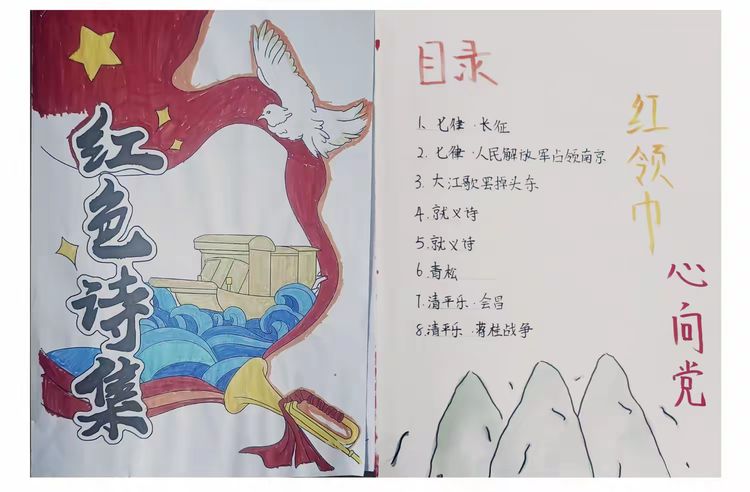 红色诗集
目录
1、七律·长征
2.七律·人民解放军占领南京
3.大江歌罢掉头东
4.就义诗
5.就义诗
6.青松
7.清平乐·会昌
8.清平乐·蒋桂战争
红领巾
心向党